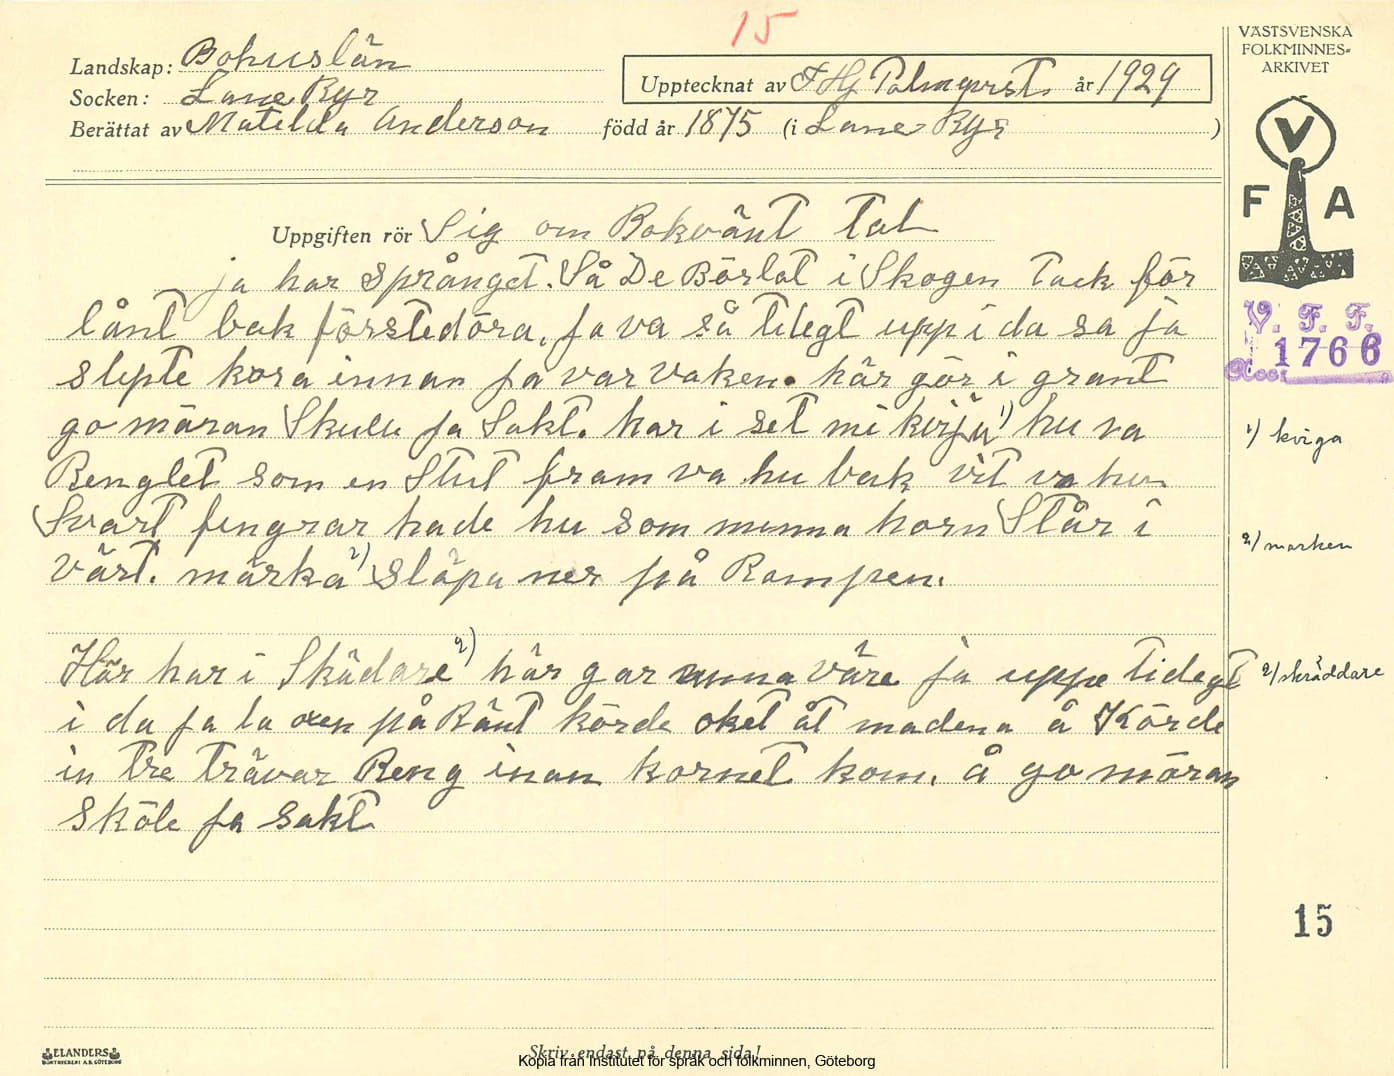 15
VÄSTSVENSKA
FOLKMINNES-
ARKIVET
Landskap: Bohuslän
Socken: Lane Ryr
Upptecknat av J Hj Palmqvist år 1929
Berättat av Matilda Anderson född år 1875 (i Lane Ryr )
V
F A
Uppgiften rör Sig om Bakvänt tal
ja har språnget. Så De Börlat i Skogen tack för
lånt bak förstedöra, ja va så tilegt upp i da sa ja
slepte kora innan ja var vaken. här gör i grant
go möran Skulle ja Sakt. har i set mi kvija 1) hu va
Renglet som en Stut fram va hu bak vit va hu
Svart fingrar hade hu som menna horn Står i
värt. märka 2) släpa ner på Rampen.
Här har i Skädare 2) här gar unna väre ja uppe tidegt
i da ja la oxen på Bänt körde oket åt madena å Körde
in tre trävar Reng inan kornet kom. å go möran
sköle ja sakt
V. F. F.
1766
1) kviga
2) marken
2) skräddare
15
ELANDERS
BOKTRYCKERI A.B. GÖTEBORG
Skriv endast på denna sida!
Kopia från Institutet för språk och folkminnen, Göteborg